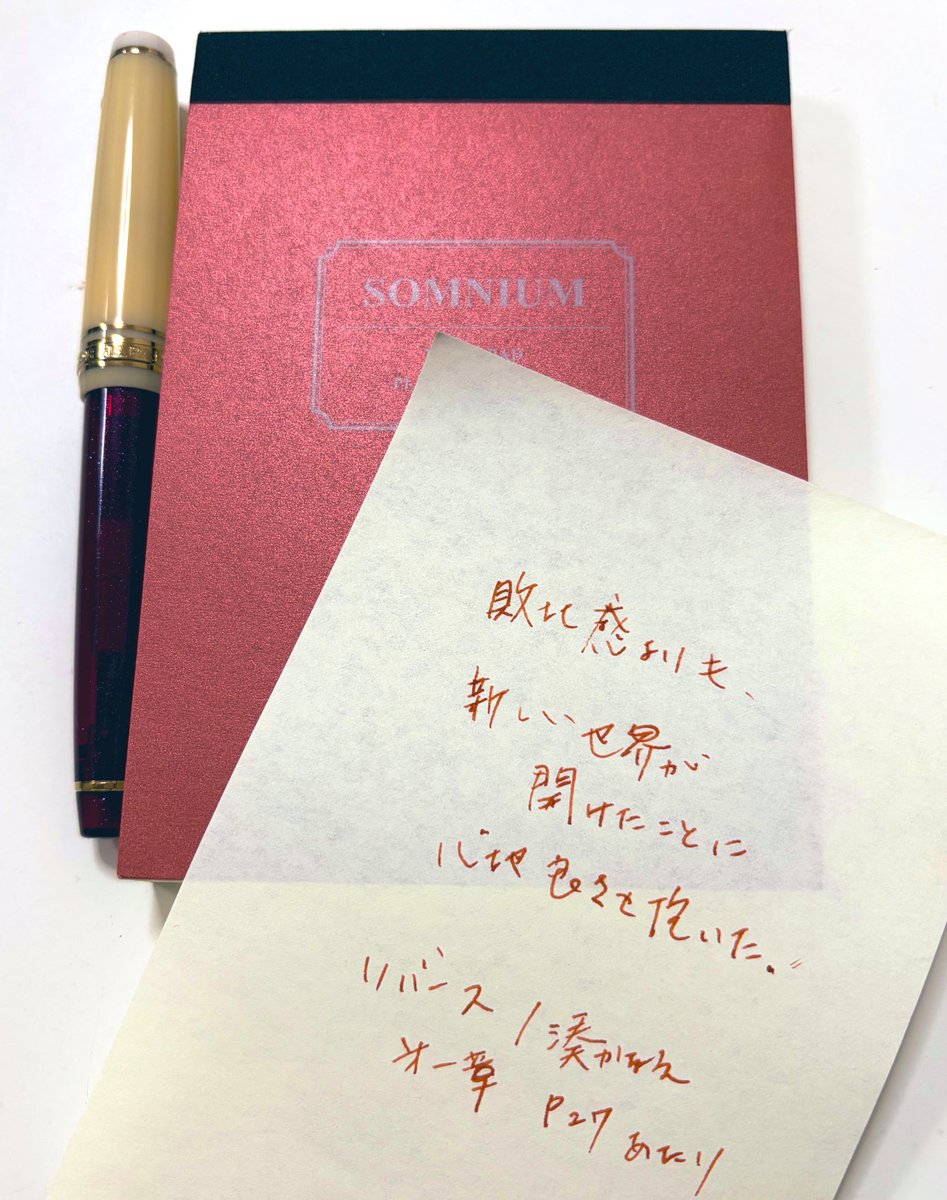 SOMNIUM
敗北感よりも、
新しい世界が
開けたことに
心地良さを抱いた。〃
リバース/湊かなえ
第一章 P27 あたり